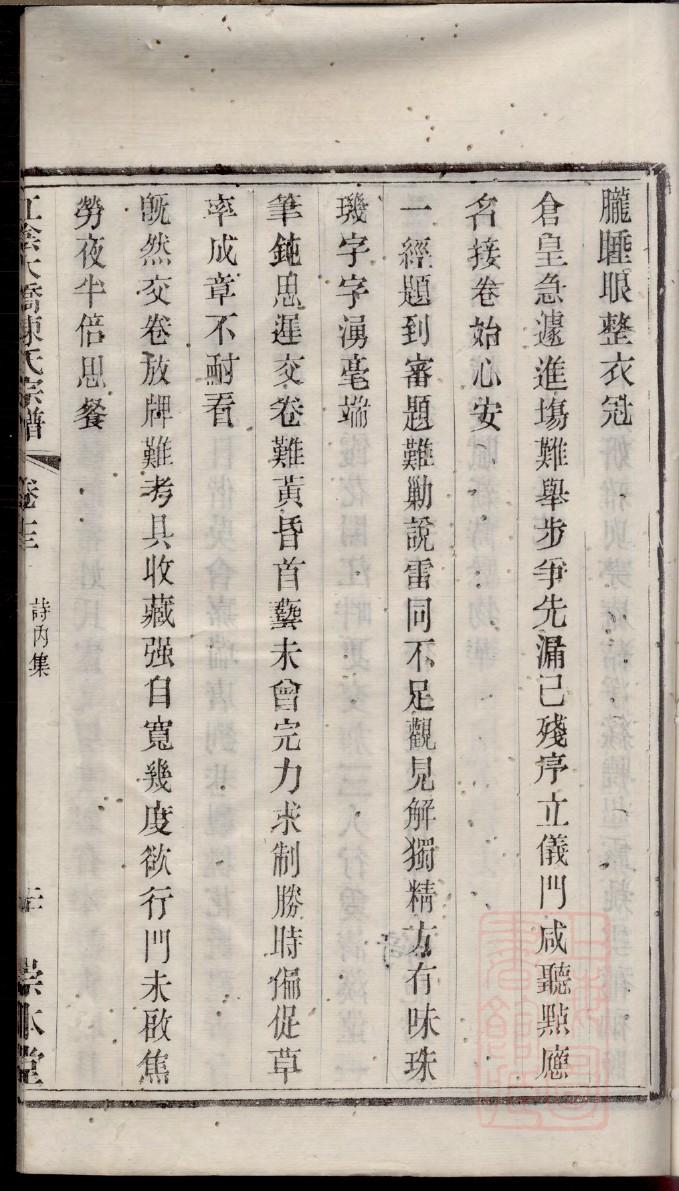 朧睡眼整衣冠
倉皇急遽進塲難舉步爭先漏已殘序立儀門咸聽㸃應
名接卷始心安
一經題到審題難勦說雷同不足觀見解獨精方有味珠
璣字字湧毫端
筆鈍思遲交卷難黃昏首藝未曾完力求制勝時偏促草
率成章不耐看
旣然交卷放牌難考具收藏强自寬幾度欲行門未啟焦
勞夜半倍思餐
江陰大橋陳氏宗譜
卷十三
詩內集
崇本堂